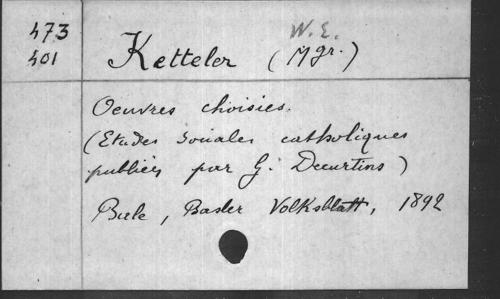 473
401
W. E.
Ketteler (Mgr.)
Oeuvres choisies.
(Etudes sociales catholiques
publiées par G. Decurtins)
Bâle, Basler Volksblatt, 1892